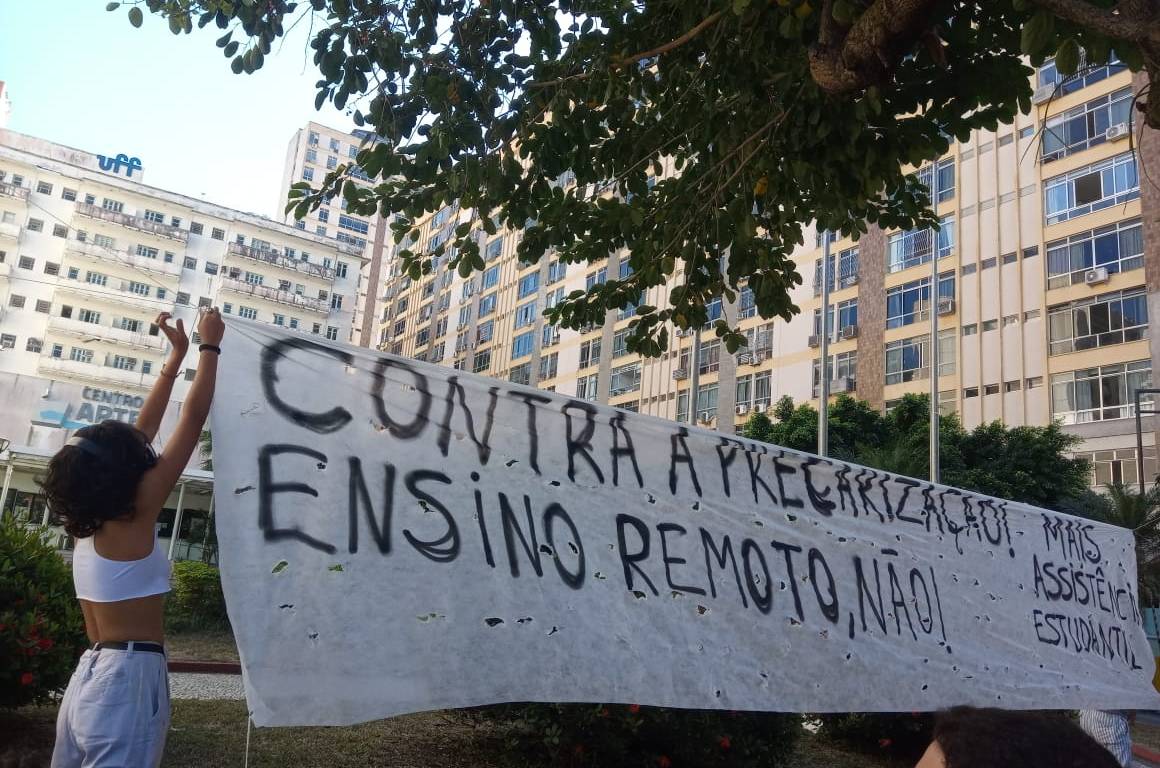 uff
CENTRO
ARTE
CONTRA A PRECARIZAÇÃO!
ENSINO REMOTO, NÃO!
MAIS
ASSISTÊNCIA
ESTUDANTIL